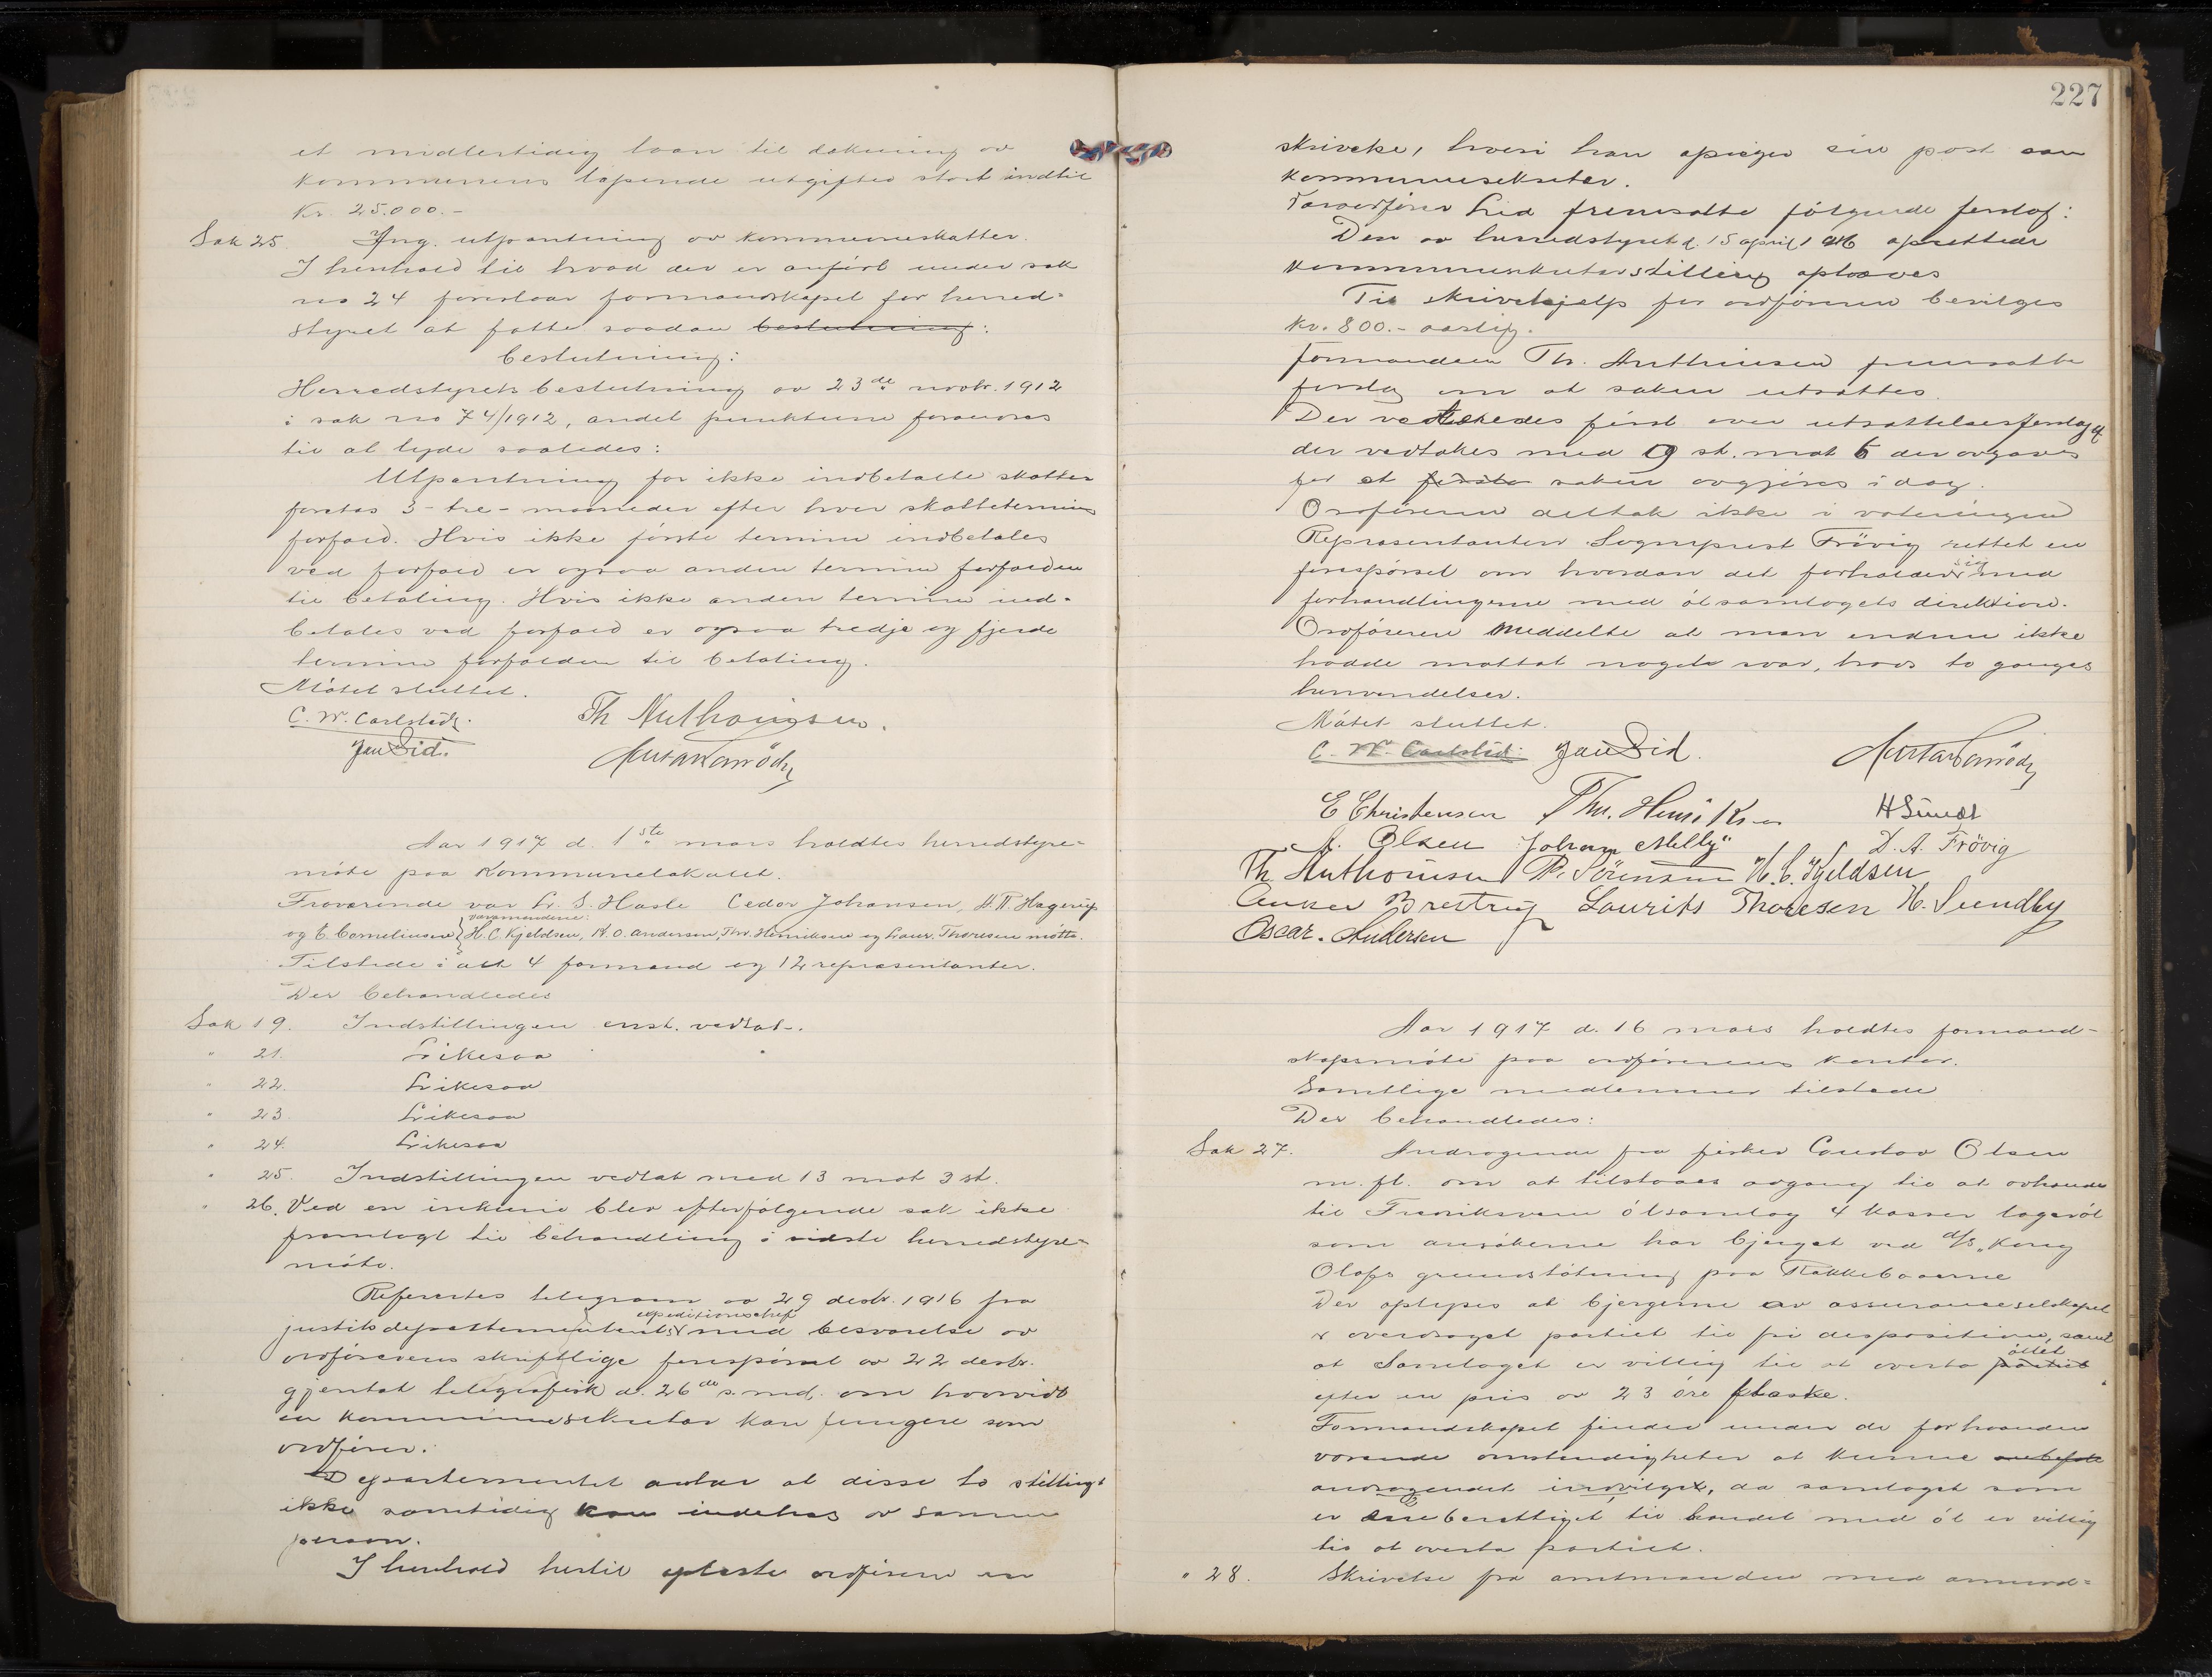 et midlertidig laan til dækning av
kommunens løpende utgifter stort indtil
Kr. 25.000.-
Sak 25. Ang. utpantning av kommuneskatter.
I henhold til hvad der er anført under sak
no 24 foreslaar formandskapet for herred-
styret at fatte saadan beslutning:
beslutning:
Herredstyrets beslutning av 23de novbr. 1912
i sak no 74/1912, andet punktum forandres
til at lyde saaledes:
Utpantning for ikke indbetalte skatter
foretas 3 - tre - maaneder efter hver skattetermins
forfald. Hvis ikke første termin indbetales
ved forfald er ogsaa anden termin forfalden
til betaling. Hvis ikke anden termin ind-
betales ved forfald er ogsaa tredje og fjerde
termin forfalden til betaling.
Møtet sluttet.
C. W. Carlstedt. Th Anthonisen.
Jan Lid.
Aar 1917 d. 1ste mars holdtes herredstyre-
møte paa Kommunelokalet.
Fraværende var L. S. Hasle Cedor Johansen, H. R. Hagerup
varamændene:
og E. Corneliussen H. C. Kjeldsen, K. O. Andersen, Thv. Henriksen og Laur. Thoresen møtte.
Tilstede i alt 4 formænd og 12 representanter.
Der behandledes
Sak 19. Indstillingen enst. vedtat.
" 21. Likesaa
" 22. Likesaa
" 23. Likesaa
" 24. Likesaa
" 25. Indstillingen vedtat med 13 mot 3 st.
" 26. Ved en inkurie blev efterfølgende sak ikke
fremlagt til behandling i sidste herredstyre-
møte.
Refereres telegram av 29 decbr. 1916 fra
expeditionschef
justitsdepartementets med besvarelse av
ordførerens skriftlige forespørsel av 22 decbr.
gjentat telegrafisk d. 26de s. md. om hvorvidt
en kommunesekretær kan fungere som
ordfører.
Departementet antar at disse to stillinger
ikke samtidig kan indehas av samme
person.
I henhold hertil oplæste ordføreren en
227
skrivelse, hvori han opsiger sin post som
kommunesekretær.
Varaordfører Lid fremsatte følgende forslag:
Den av herredstyret d. 15 april 1916 oprettede
kommunesekretærstilling ophæves
Til skrivehjælp for ordføreren bevilges
Kr. 800.- aarlig.
Formanden Th. Anthonisen fremsatte
forslag om at saken utsættes.
Der voteredes først over utsættelsesforslaget
der vedtokes med 9 st. mot 6 der avgaves
for at saken avgjøres idag.
Ordføreren deltok ikke i voteringen
Repræsentanten Sogneprest Frövig rettet en
forespørsel om hvordan det forholder sig med
forhandlingerne med ølsamlagets direktion.
Ordføreren meddelte at man endnu ikke
hadde mottat noget svar, trods to ganges
henvendelser.
Møtet sluttet.
C. W. Carlstedt. Jan Lid.
E Christensen Thv. Henriksen H Sundt
A. Olsen Johan Melby D. A. Frövig
Th. Anthonisen P. Sörensen H. C. Kjeldsen
Anker Brestrup Laurits Thoresen H. Sundby
Oscar. Andersen
Aar 1917 d. 16 mars holdtes formand-
skapsmøte paa ordførerens kontor.
Samtlige medlemmer tilstede
Der behandledes:
Sak 27. Andragende fra fisker Gustav Olsen
m. fl. om at tilstaaes adgang til at avhænde
til Fredriksværn ølsamlag 4 kasser lagerøl
som ansøkerne har bjerget ved d/s „Kong
Olafs grundstøtning paa Rakkeboaerne
Der oplyses at bjergerne av assuranceselskapet
er overdraget partiet til fri disposition, samt
at Samlaget er villig til at overta partiet øllet
efter en pris av 23 øre flaske.
Formandskapet finder under de forhaanden
værende omstendigheter at kunne anbefale
andragendet indvilget, da samlaget som
er eneberettiget til handel med øl er villig
til at overta partiet.
" 28. Skrivelse fra amtmanden med anmod-